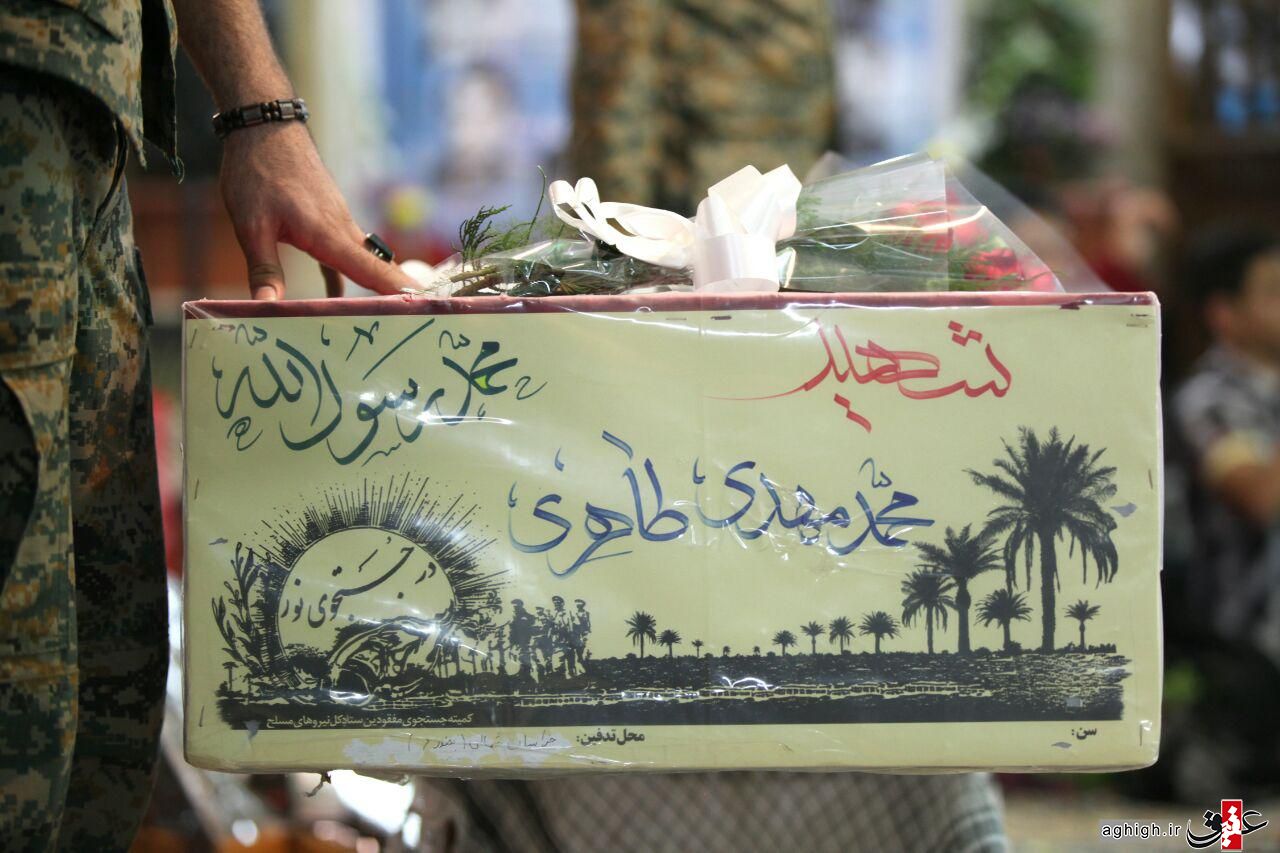 شهید
محمد رسول الله
محمد مهدی طاهری
در جستجوی نور
کمیته جستجوی مفقودین ستاد کل نیروهای مسلح
سن:
محل تدفین: خراسان شمالی
عقیق
aghigh.ir